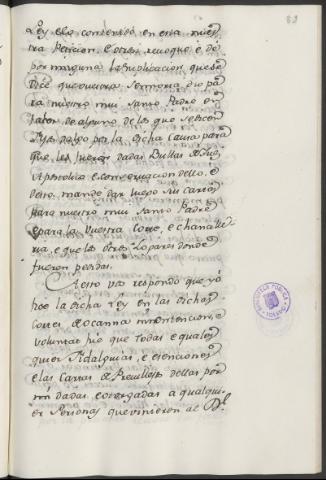 89
Ley ello contenido en esta nues
tra Peticion. e otrosi revoque e dè
por ninguna la suplicacion que se
Dice que vuestra Señoria dio pa
ra nuestro mui Santo Padre en
favor de algunos de los que se hicon
Fijos dalgo por la dicha causa para
que les fueran dadas Bullas
Apostolica e conservacion dello. e
desto mande dar luego sus cartas
para nuestro mui Santo Padre
e para la Vuestra Corte, e chanalle
ria, e que los otros Logares donde
fueron pendas.
A esto vos respondo que yo
hice la dicha Ley en las dichas
Cortes de Ocanna mi intencion, e
voluntad fue que todas e quales
quier Fidalguias, e esenciones
e las Cartas de Previllejos dellas por
mi dadas e otorgadas a qualqui
er Personas que vinieron al
BIBLIOTECA PUBLICA
TOLEDO